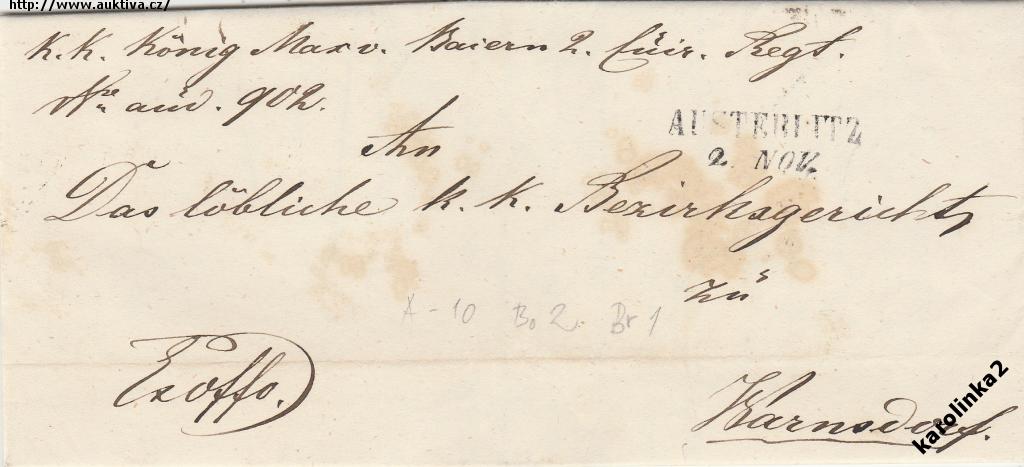 http://www.auktiva.cz/
K. K. König Max v. Baiern 2. Cüir. Regt.
aúd. 902.
AUSTERLITZ
2. NOV.
An
Das löbliche k. k. Bezirksgericht
zú
A-10 Bo 2 Br 1
Ex offo.
Warnsdorf.
karolinka2